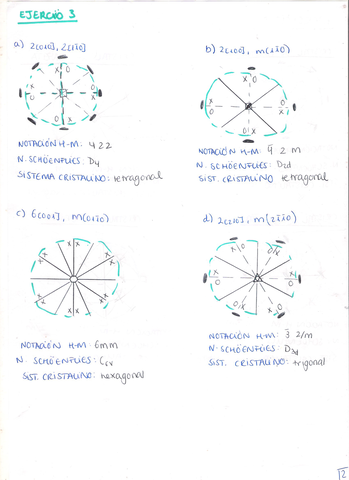 EJERCICIO 3
a) 2[010], 2[1̄10]
NOTACIÓN H-M: 422
N. SCHÖENFLIES: D4
SISTEMA CRISTALINO: tetragonal
b) 2[100], m(1̄10)
NOTACIÓN H-M: 4̄ 2 m
N. SCHÖENFLIES: D2d
SIST. CRISTALINO: tetragonal
c) 6[001], m(01̄0)
NOTACIÓN H-M: 6mm
N. SCHÖENFLIES: C6v
SIST. CRISTALINO: hexagonal
d) 2[210], m(21̄1̄0)
NOTACIÓN H-M: 3̄ 2/m
N. SCHÖENFLIES: D3d
SIST. CRISTALINO: trigonal
2